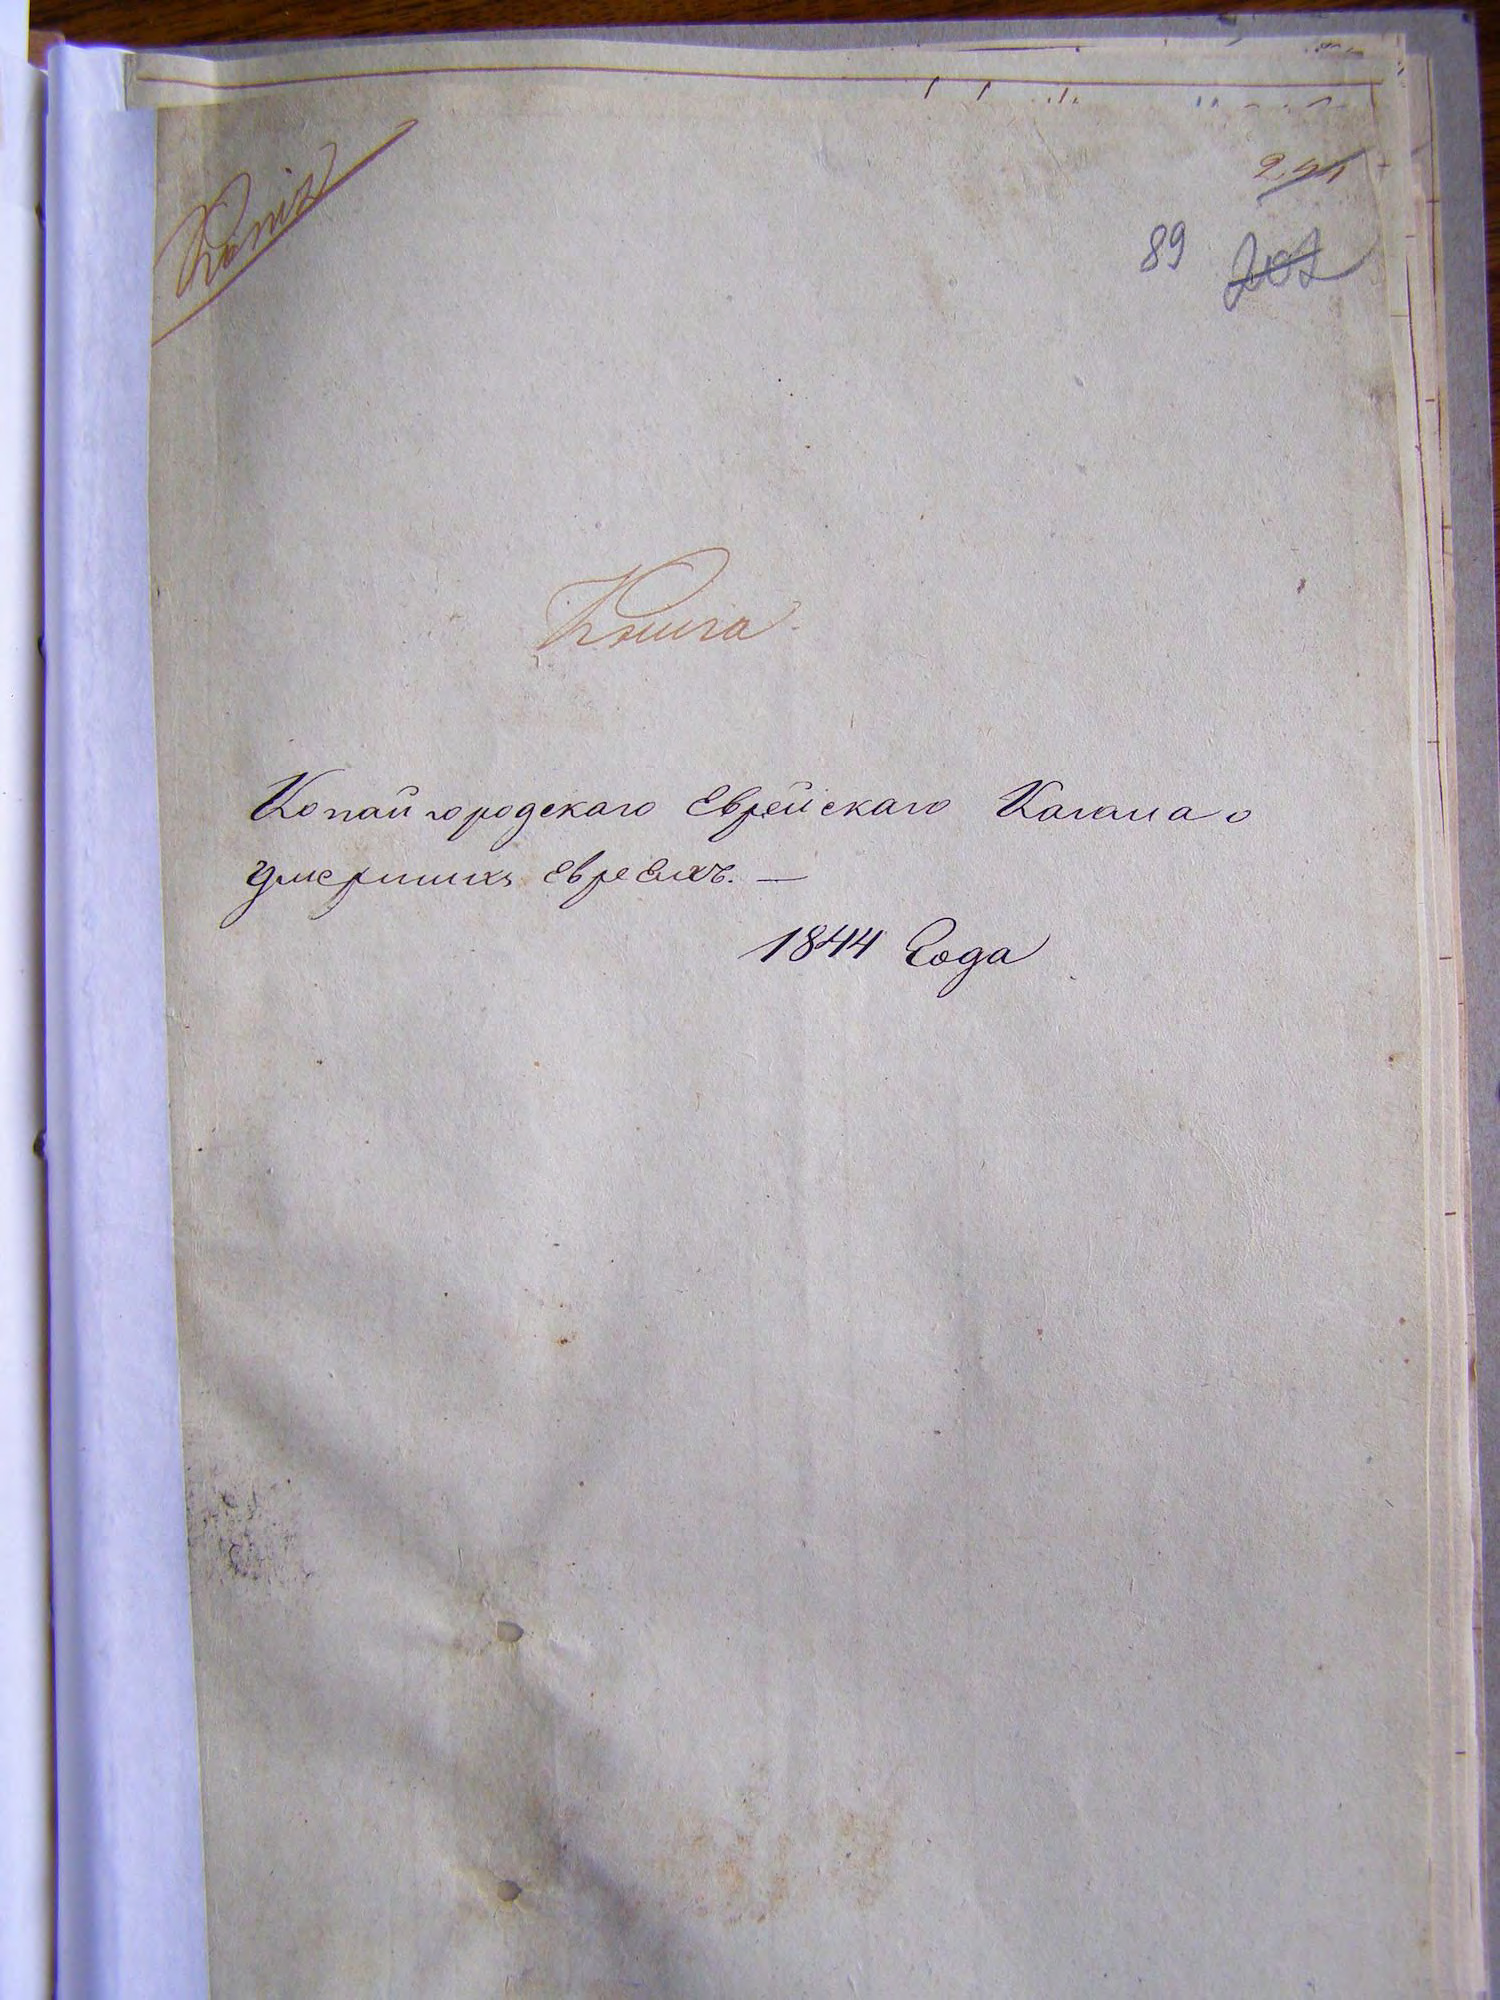 Копія
291
89 202
Книга
Копайгородскаго Еврейскаго Кагала о
умершихъ евреяхъ. —
1844 Года